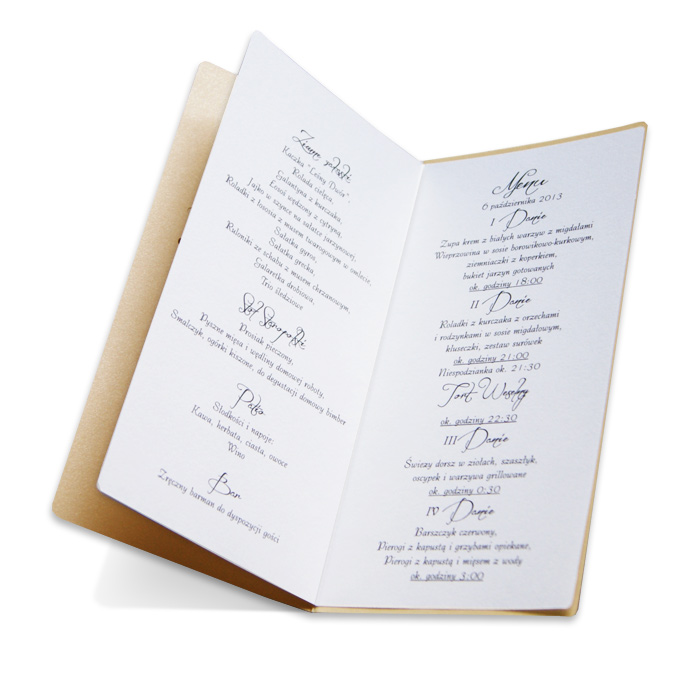 Zimne półmiski:
Kaczka "Leśny Dwór",
Rolada cielęca,
Galantyna z kurczaka,
Łosoś wędzony z cytryną,
Jajko w szynce na sałatce jarzynowej,
Roladki z łososia z musem twarogowym w omlecie,
Sałatka gyros,
Sałatka grecka,
Ruloniki ze schabu z musem chrzanowym,
Galaretka drobiowa,
Trio śledziowe
Stół Staropolski
Prosiak pieczony,
Pyszne mięsa i wędliny domowej roboty,
Smalczyk, ogórki kiszone, do degustacji domowy bimber
Słodkości i napoje:
Kawa, herbata, ciasta, owoce
Wino
Bar
Zręczny barman do dyspozycji gości
Menu
6 października 2013
I Danie
Zupa krem z białych warzyw z migdałami
Wieprzowina w sosie borowikowo-kurkowym,
ziemniaczki z koperkiem,
bukiet jarzyn gotowanych
ok. godziny 18:00
II Danie
Roladki z kurczaka z orzechami
i rodzynkami w sosie migdałowym,
kluseczki, zestaw surówek
ok. godziny 21:00
Niespodzianka ok. 21:30
Tort Weselny
ok. godziny 22:30
III Danie
Świeży dorsz w ziołach, szaszłyk,
oscypek i warzywa grillowane
ok. godziny 0:30
IV Danie
Barszczyk czerwony,
Pierogi z kapustą i grzybami opiekane,
Pierogi z kapustą i mięsem z wody
ok. godziny 3:00